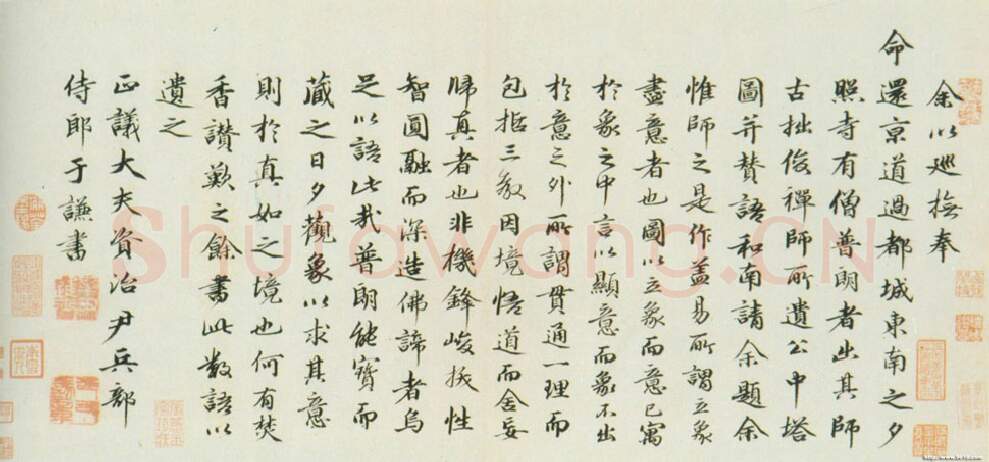 余以巡撫奉
命還京道過都城東南之夕
照寺有僧普朗者出其師
古拙俊禪師所遺公中塔
圖并贊語和南請余題余
惟師之是作盖易所謂立象
盡意者也圖以立象而意已寓
於象之中言以顯意而象不出
於意之外所謂貫通一理而
包括三教因境悟道而舍妄
歸真者也非機鋒峻拔性
智圓融而深造佛諦者烏
足以語此哉普朗能寶而
藏之日夕觀象以求其意
則於真如之境也何有焚
香讃歎之餘書此數語以
遺之
正議大夫資治尹兵部
侍郎于謙書
Shufawang.CN